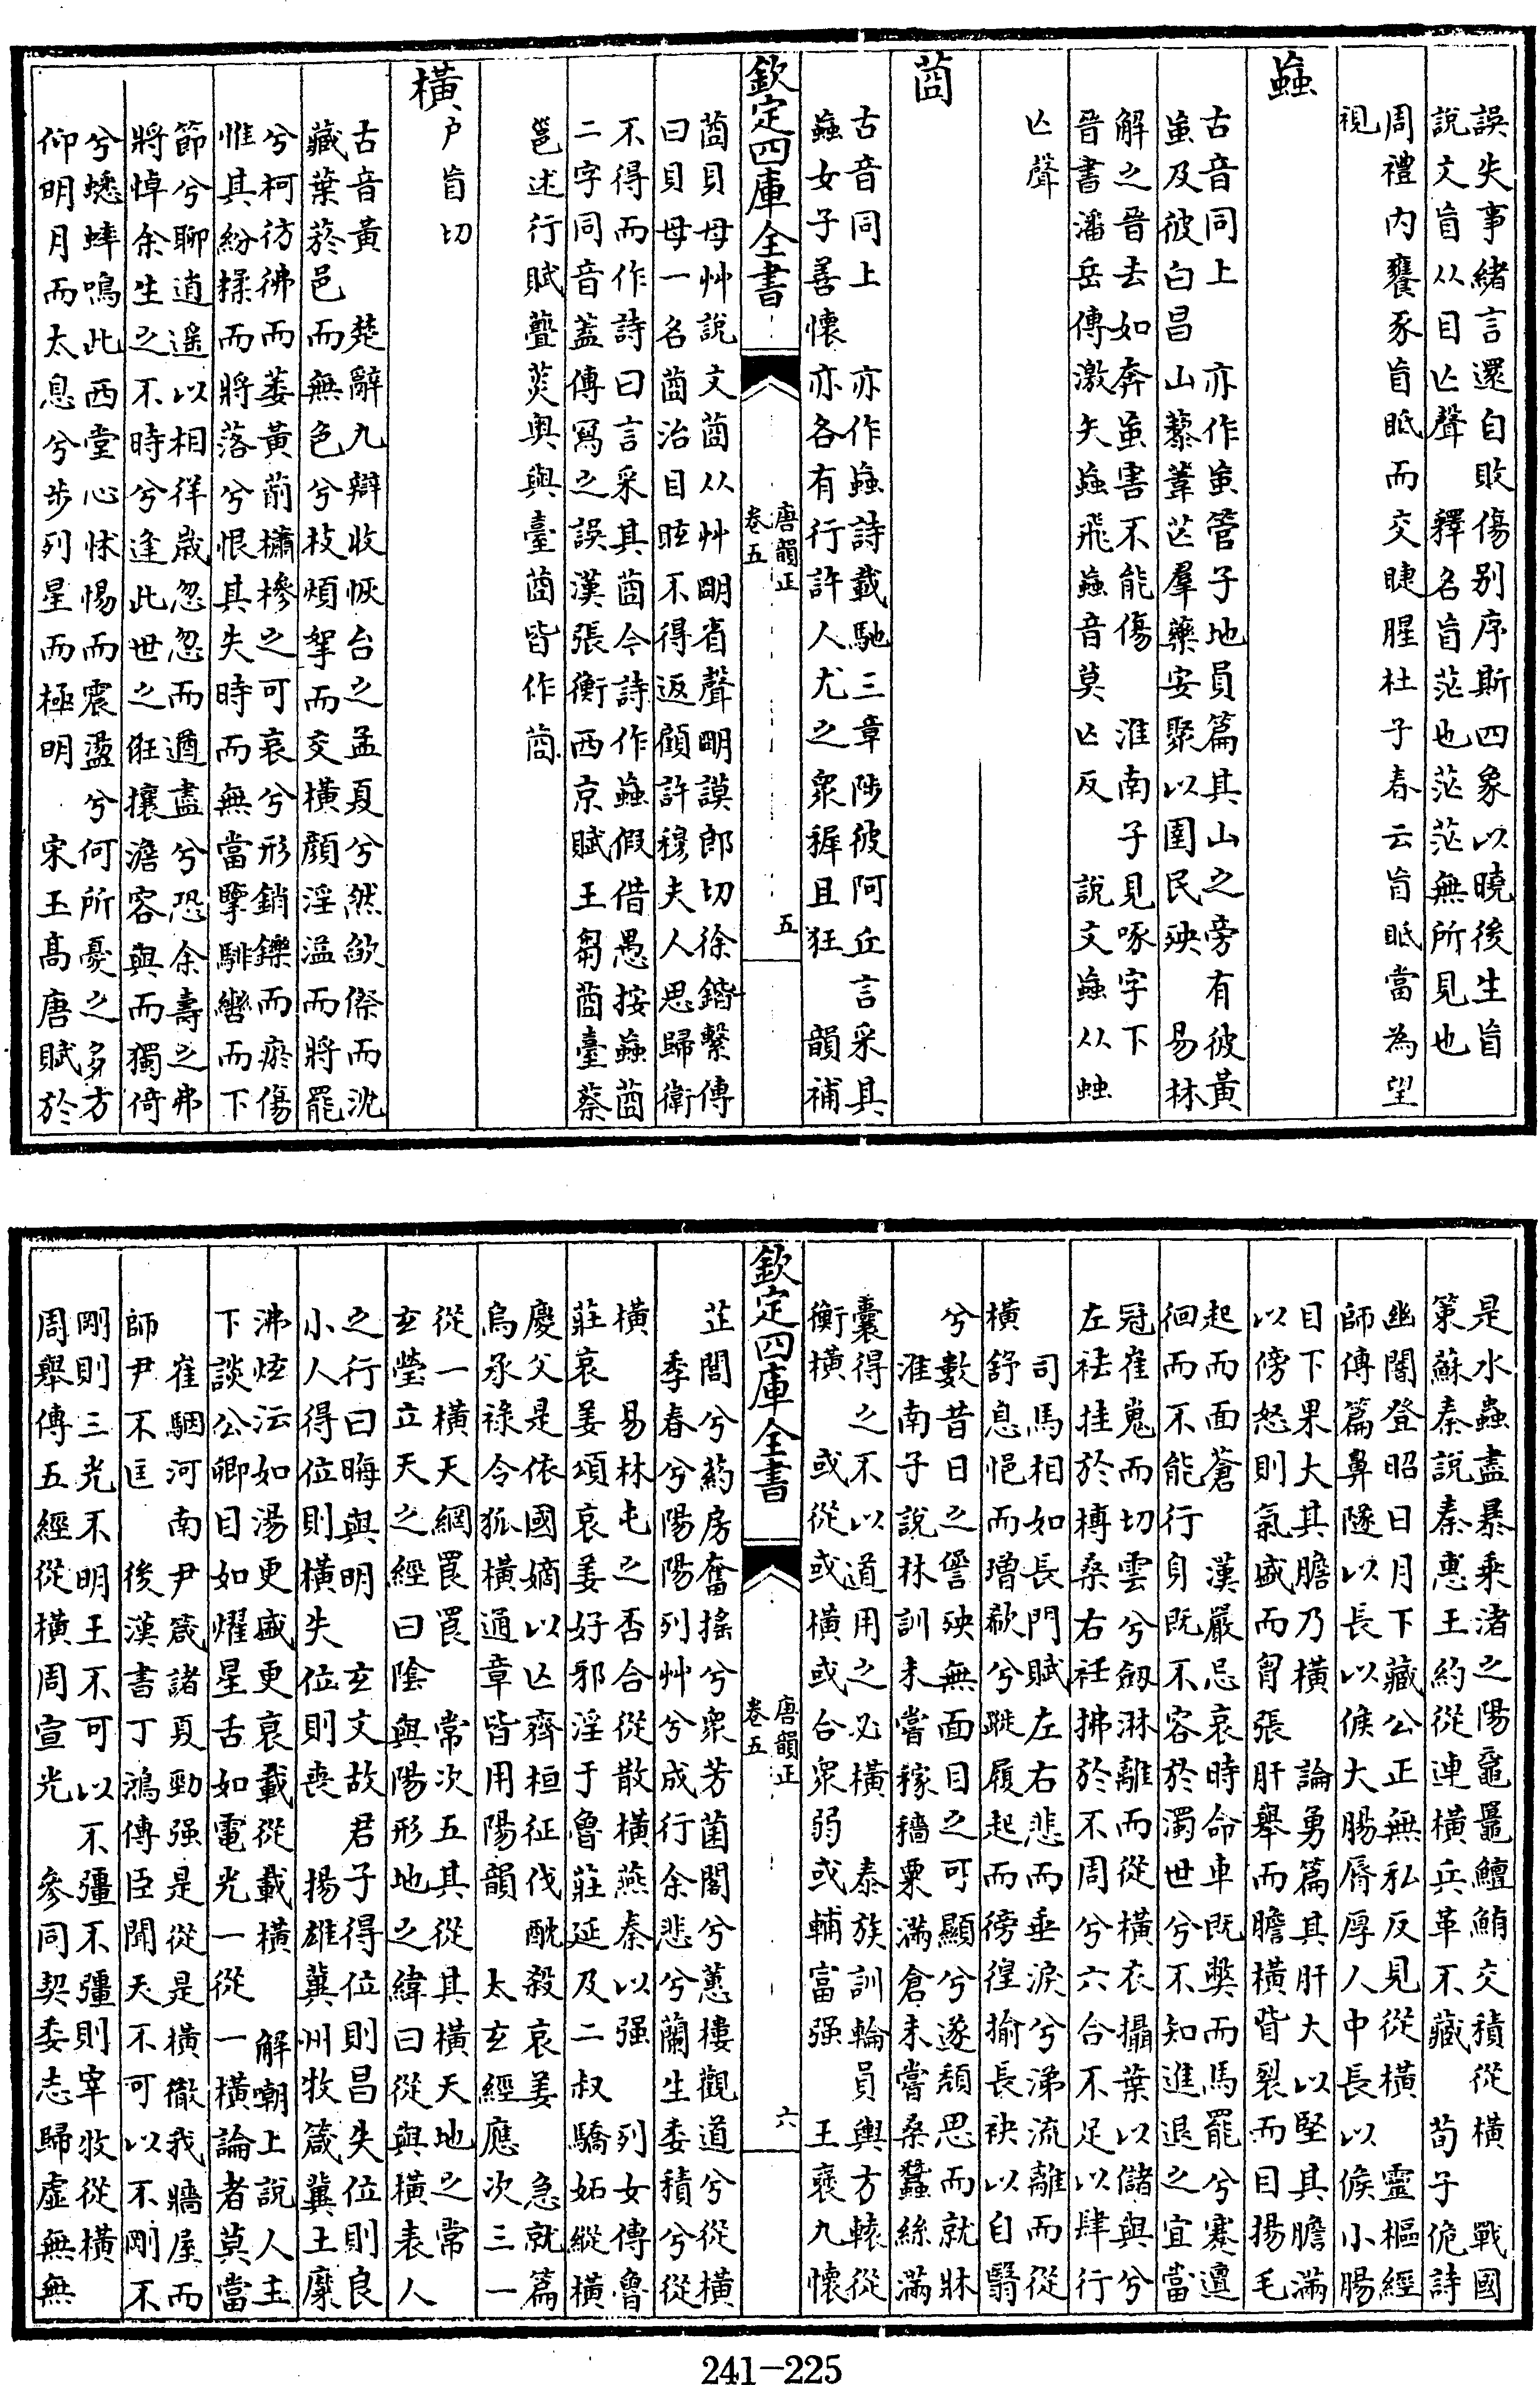 誤失事緒言還自敗傷别序斯四象以曉後生盲
說文盲从目亾聲　釋名盲茫也茫茫無所見也
周禮内饔豕盲眂而交睫腥杜子春云盲眂當為望
視
蝱
古音同上　亦作䖟管子地員篇其山之旁有彼黄
䖟及彼白昌山藜葦芒羣藥安聚以圉民殃　易林
解之晉去如奔䖟害不能傷　淮南子見啄字下
晉書潘岳傳激矢蝱飛蝱音莫亾反　說文蝱从䖵
亾聲
莔
古音同上　亦作蝱詩載馳三章陟彼阿丘言采其
蝱女子善懷亦各有行許人尤之衆穉且狂　韻補
欽定四庫全書
唐韻正
卷五
五
莔貝母艸說文莔从艸朙省聲朙謨郎切徐鍇繫傳
曰貝母一名莔治目眩不得返顧許穆夫人思歸衛
不得而作詩曰言采其莔今詩作蝱假借愚按蝱莔
二字同音蓋傳寫之誤漢張衡西京賦王芻莔臺蔡
邕述行賦虋菼奥與臺莔皆作莔
横
户盲切
古音黄　楚辭九辯收恢台之孟夏兮然欿傺而沈
藏葉菸邑而無色兮枝煩挐而交横顔淫溢而將罷
兮柯彷彿而萎黄萷櫹槮之可哀兮形銷鑠而瘀傷
惟其紛糅而將落兮恨其失時而無當擥騑轡而下
節兮聊逍遥以相佯歲忽忽而遒盡兮恐余壽之弗
將悼余生之不時兮逢此世之俇攘澹容與而獨倚
兮蟋蟀鳴此西堂心怵惕而震盪兮何所憂之多方
仰明月而太息兮步列星而極明　宋玉高唐賦於
是水蟲盡暴乘渚之陽黿鼉鱣鮪交積從横　戰國
策蘇秦說秦惠王約從連横兵革不藏　荀子佹詩
幽闇登昭日月下藏公正無私反見從横　靈樞經
師傅篇鼻隧以長以候大腸脣厚人中長以候小腸
目下果大其膽乃横　論勇篇其肝大以堅其膽滿
以傍怒則氣盛而胷張肝舉而膽横眥裂而目揚毛
起而面蒼　漢嚴忌哀時命車既獘而馬罷兮蹇邅
徊而不能行身既不容於濁世兮不知進退之宜當
冠崔嵬而切雲兮劒淋離而從横衣攝葉以儲與兮
左袪挂於榑桑右衽拂於不周兮六合不足以肆行
司馬相如長門賦左右悲而垂淚兮涕流離而從
横舒息悒而增欷兮蹝履起而徬徨揄長袂以自翳
兮數昔日之諐殃無面目之可顯兮遂頽思而就牀
淮南子說林訓未嘗稼穡粟滿倉未嘗桑蠶絲滿
囊得之不以道用之必横　泰族訓輪員輿方轅從
衡横　或從或横或合衆弱或輔富强　王褒九懷
欽定四庫全書
唐韻正
卷五
六
芷閭兮葯房奮摇兮衆芳菌閣兮蕙樓觀道兮從横
季春兮陽陽列艸兮成行余悲兮蘭生委積兮從
横　易林屯之否合從散横燕秦以强　列女傳魯
莊哀姜頌哀姜好邪淫于魯莊延及二叔驕妬縱横
慶父是依國嫡以亾齊桓征伐酖殺哀姜　急就篇
烏承祿令狐横通章皆用陽韻　太玄經應次三一
從一横天網罠罠　常次五其從其横天地之常
玄瑩立天之經曰陰與陽形地之緯曰從與横表人
之行曰晦與明　玄文故君子得位則昌失位則良
小人得位則横失位則喪　揚雄冀州牧箴冀土麋
沸炫沄如湯更盛更衰載從載横　解嘲上說人主
下談公卿目如燿星舌如電光一從一横論者莫當
崔駰河南尹箴諸夏勁强是從是横徹我牆屋而
師尹不匡　後漢書丁鴻傳臣聞天不可以不剛不
剛則三光不明王不可以不彊不彊則宰牧從横
周舉傳五經從横周宣光　參同契委志歸虚無無
241-225